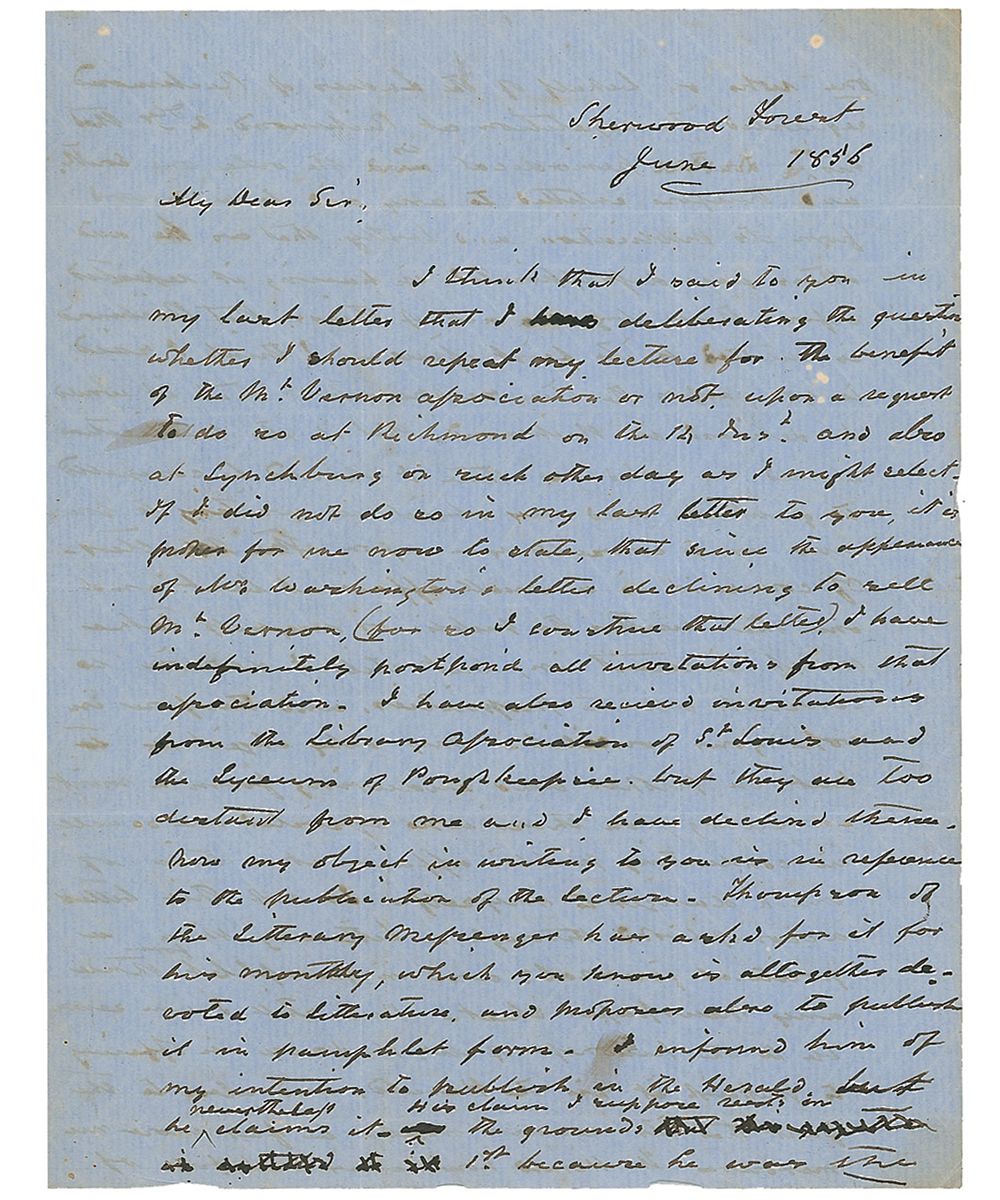 Sherwood Forest
June 1856
My Dear Sir,
I think that I said to you in
my last letter that I was deliberating the question
whether I should repeat my lecture for the benefit
of the Mt. Vernon association or not, upon a request
to do so at Richmond on the 12 Inst. and also
at Lynchburg on such other day as I might select.
If I did not do so in my last letter to you, it is
proper for me now to state, that since the appearance
of Mr. Washington's letter declining to sell
Mt. Vernon, (for so I construe that letter), I have
indefinitely postpond all invitations from that
association. I have also recievd invitations
from the Library Association of St. Louis and
the Lyceum of Poughkeepsie. but they are too
distant from me and I have declind them.
Now my object in writing to you is in reference
to the publication of the lecture. Thompson of
the Litterary Messenger has askd for it for
his monthly, which you know is altogether de-
voted to litterature, and proposes also to publish
it in pamphlet form. I informd him of
my intention to publish in the Herald but
nevertheless His claim I suppose rests on
he claims it. the grounds
1st. because he was the